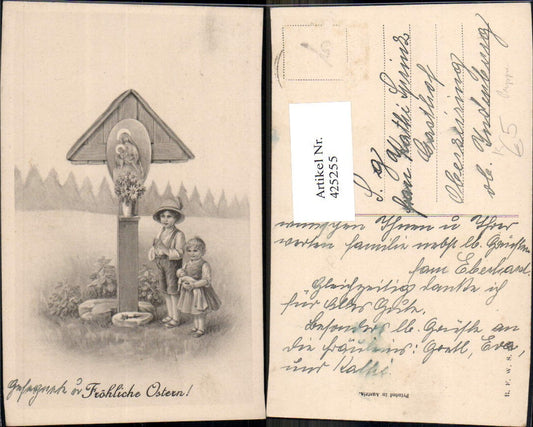 Gesegnete u Fröhliche Ostern!
Artikel Nr.
425255
S. g
Frau Kathi
Gasthof
Oberzeiring
ob. Judenburg
65
wünschen Ihnen u Ihrer
werten Familie nebst lb. Grüßen
Fam Eberhard.
Gleichzeitig danke ich
für Alles Gute.
Besonders lb. Grüße an
die Fräuleins: Gretl, Eva,
und Kathi
Printed in Austria.
B. F. W. S.